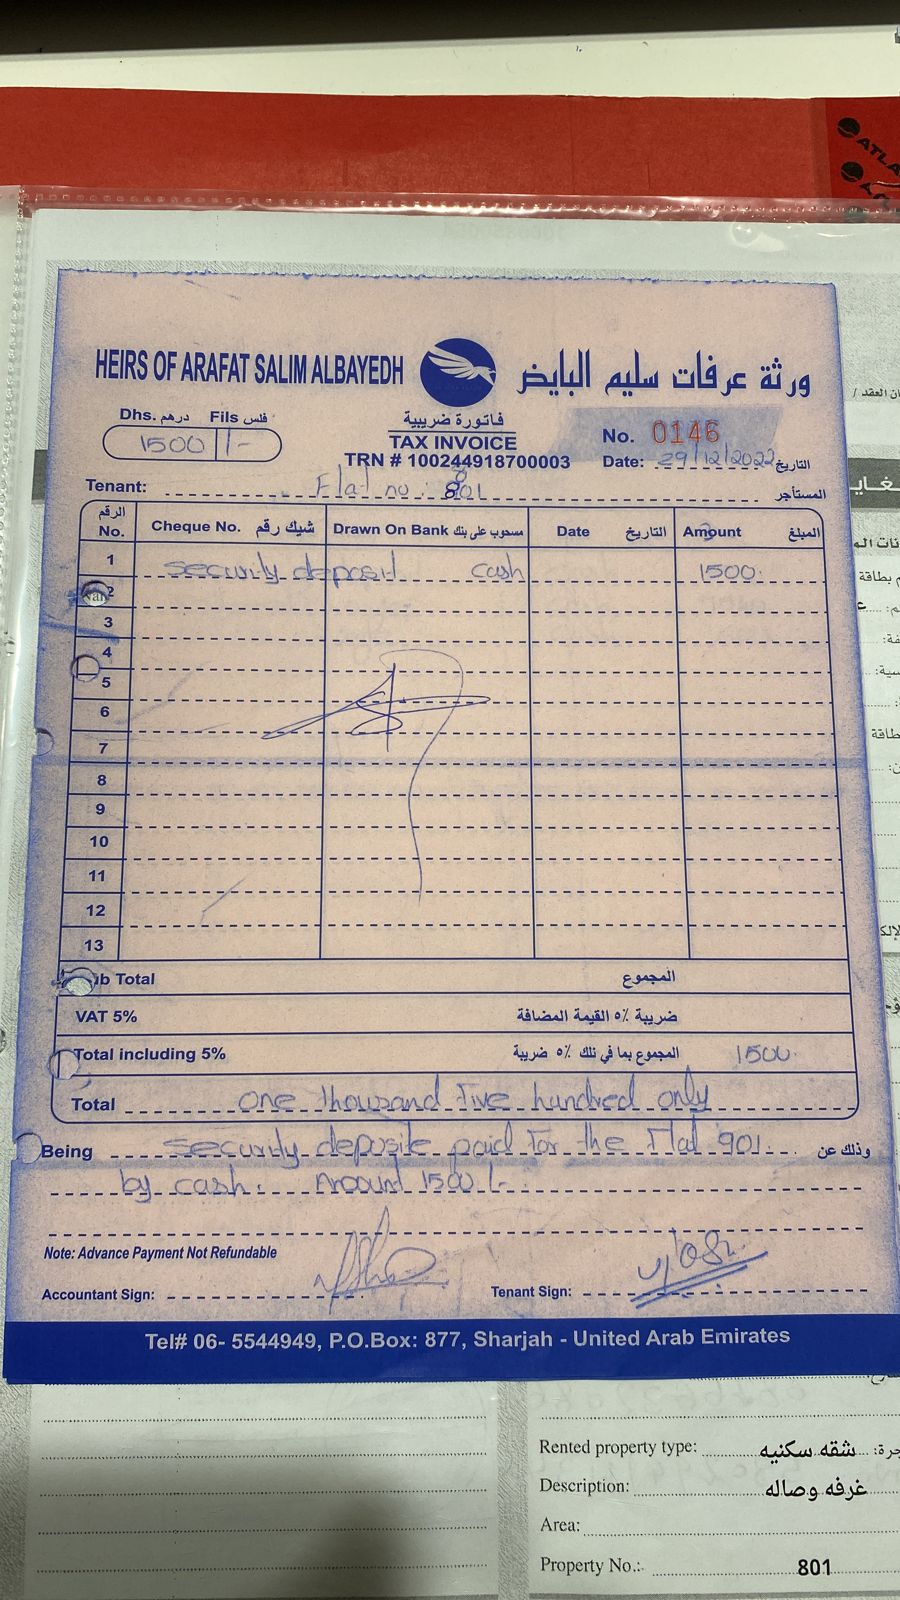 ATLA
HEIRS OF ARAFAT SALIM ALBAYEDH
ورثة عرفات سليم البايض
Dhs. درهم Fils فلس
1500 /-
فاتورة ضريبية
TAX INVOICE
TRN # 100244918700003
No. 0146
Date: 29/12/2022 التاريخ
Tenant: Flat no: 801 المستأجر
الرقم No. Cheque No. شيك رقم Drawn On Bank مسحوب على بنك Date التاريخ Amount المبلغ
1 security deposit cash 1500.
2
3
4
5
6
7
8
9
10
11
12
13
ub Total المجموع
VAT 5% ضريبة ٥٪ القيمة المضافة
Total including 5% المجموع بما في تلك ٥٪ ضريبة 1500.
Total one thousand five hundred only
Being security deposite paid for the flat 901. وذلك عن
by cash. Amount 1500/-
Note: Advance Payment Not Refundable
Accountant Sign:
Tenant Sign:
Tel# 06- 5544949, P.O.Box: 877, Sharjah - United Arab Emirates
Rented property type: شقه سكنيه
Description: غرفه وصاله
Area:
Property No.: 801